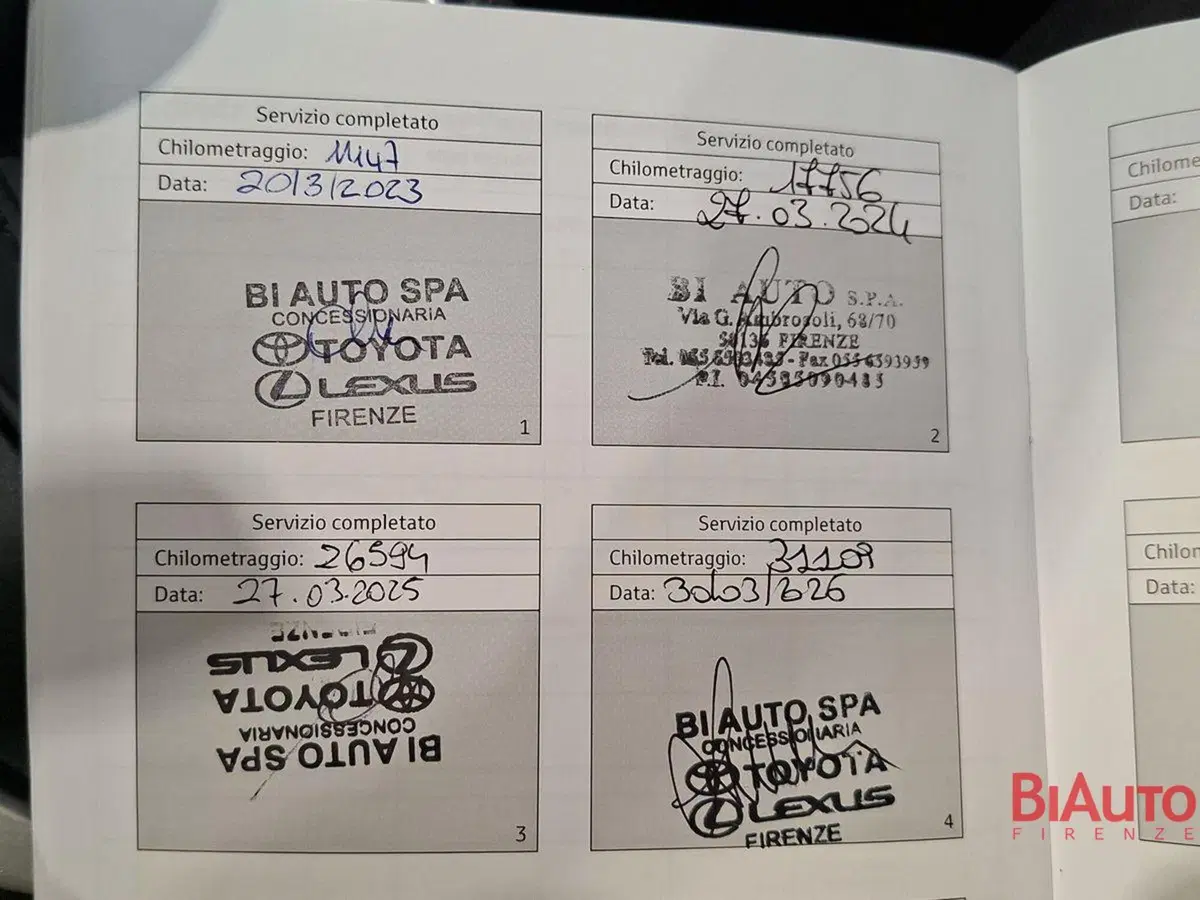 Servizio completato
Chilometraggio: 11147
Data: 20/3/2023
BI AUTO SPA
CONCESSIONARIA
TOYOTA
LEXUS
FIRENZE
1
Servizio completato
Chilometraggio: 17756
Data: 27.03.2024
BI AUTO S.P.A.
Via G. Ambrosoli, 68/70
50136 FIRENZE
Tel. - Fax 055 6593959
P.I.
2
Servizio completato
Chilometraggio: 26594
Data: 27.03.2025
FIRENZE
LEXUS
TOYOTA
CONCESSIONARIA
BI AUTO SPA
3
Servizio completato
Chilometraggio: 31109
Data:
BI AUTO SPA
CONCESSIONARIA
TOYOTA
LEXUS
FIRENZE
4
Chilome
Data:
Chilon
Data:
BIAUTO
FIRENZE